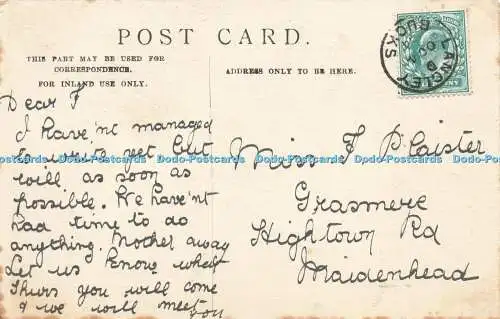 POST CARD.
THIS PART MAY BE USED FOR
CORRESPONDENCE.
FOR INLAND USE ONLY.
ADDRESS ONLY TO BE HERE.
LANGLEY
BUCKS
Dear F
I have'nt managed
to write yet but
will as soon as
possible. We have'nt
had time to do
anything. Mother away
Let us know what
Thurs you will come
& we will meet
you
Miss F Plaister
Grasmere
Hightown Rd
Maidenhead
Dodo-Postcards Dodo-Postcards Dodo-Postcards Dodo-Postcards Dodo-Postcards